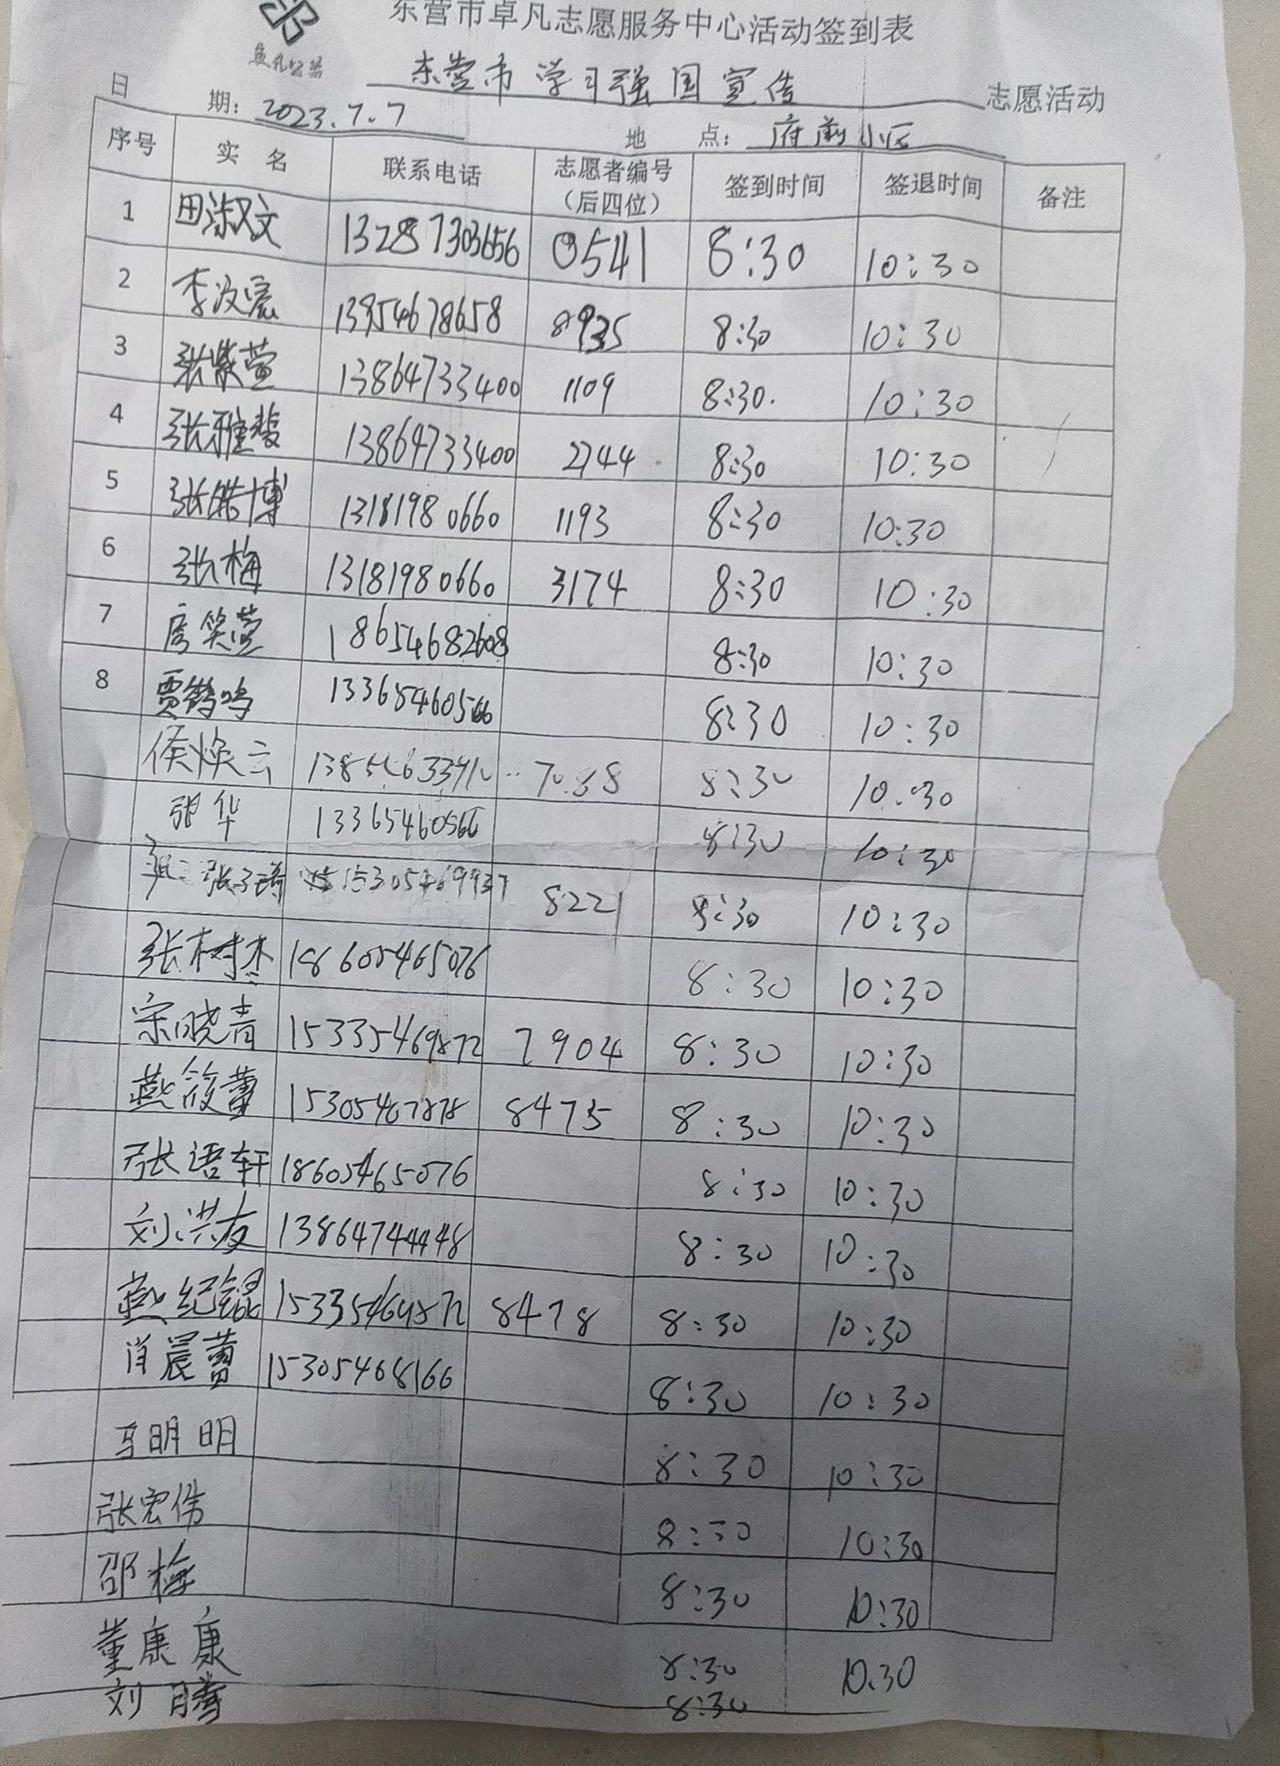 东营市卓凡志愿服务中心活动签到表
东营市学习强国宣传 志愿活动
日 期: 2023.7.7 地 点: 府前小区
序号 实 名 联系电话 志愿者编号（后四位） 签到时间 签退时间 备注
1 田淑文 13287303656 0541 8:30 10:30
2 李汶宸 13954678658 8935 8:30 10:30
3 张紫萱 13864733400 1109 8:30 10:30
4 张雅馥 13864733400 2744 8:30 10:30
5 张皓博 13181980660 1193 8:30 10:30
6 张梅 13181980660 3174 8:30 10:30
7 房笑萱 18654682608 8:30 10:30
8 贾鹤鸣 13365460566 8:30 10:30
侯焕云 7088 8:30 10:30
张华 13365460566 8:30 10:30
张子琦 15305469937 8221 8:30 10:30
张树杰 18605465076 8:30 10:30
宋晓青 15335469872 7904 8:30 10:30
燕筱蕾 15305467878 8475 8:30 10:30
张语轩 18605465076 8:30 10:30
刘洪友 13864744448 8:30 10:30
燕纪锟 15335469872 8478 8:30 10:30
肖晨蕾 15305468166 8:30 10:30
马明明 8:30 10:30
张宏伟 8:30 10:30
邵梅 8:30 10:30
董康康 8:30 10:30
刘腾 8:30